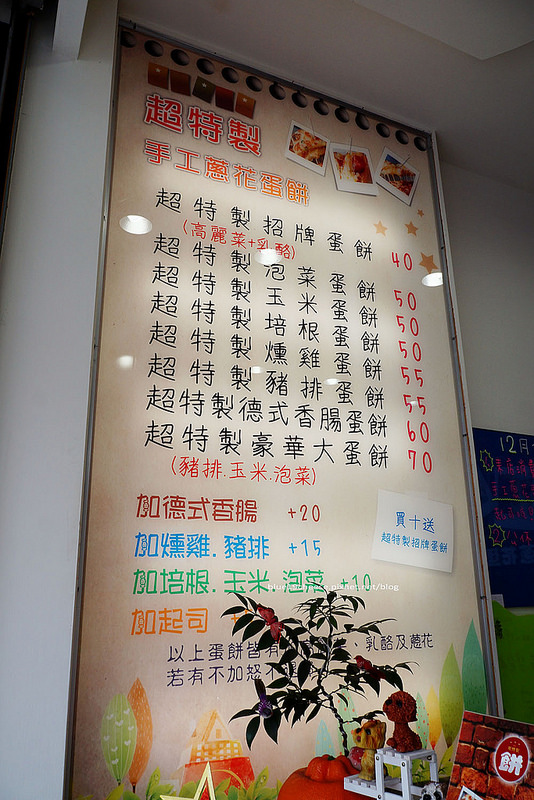 超特製
手工蔥花蛋餅
超特製招牌蛋餅 40
(高麗菜+乳酪)
超特製泡菜蛋餅 50
超特製玉米蛋餅 50
超特製培根蛋餅 50
超特製燻雞蛋餅 55
超特製豬排蛋餅 55
超特製德式香腸蛋餅 60
超特製豪華大蛋餅 70
(豬排.玉米.泡菜)
加德式香腸 +20
加燻雞.豬排 +15
加培根.玉米.泡菜 +10
加起司
買十送
超特製招牌蛋餅
以上蛋餅皆有 、乳酪及蔥花
若有不加怒不
12月
手工蔥花
餅